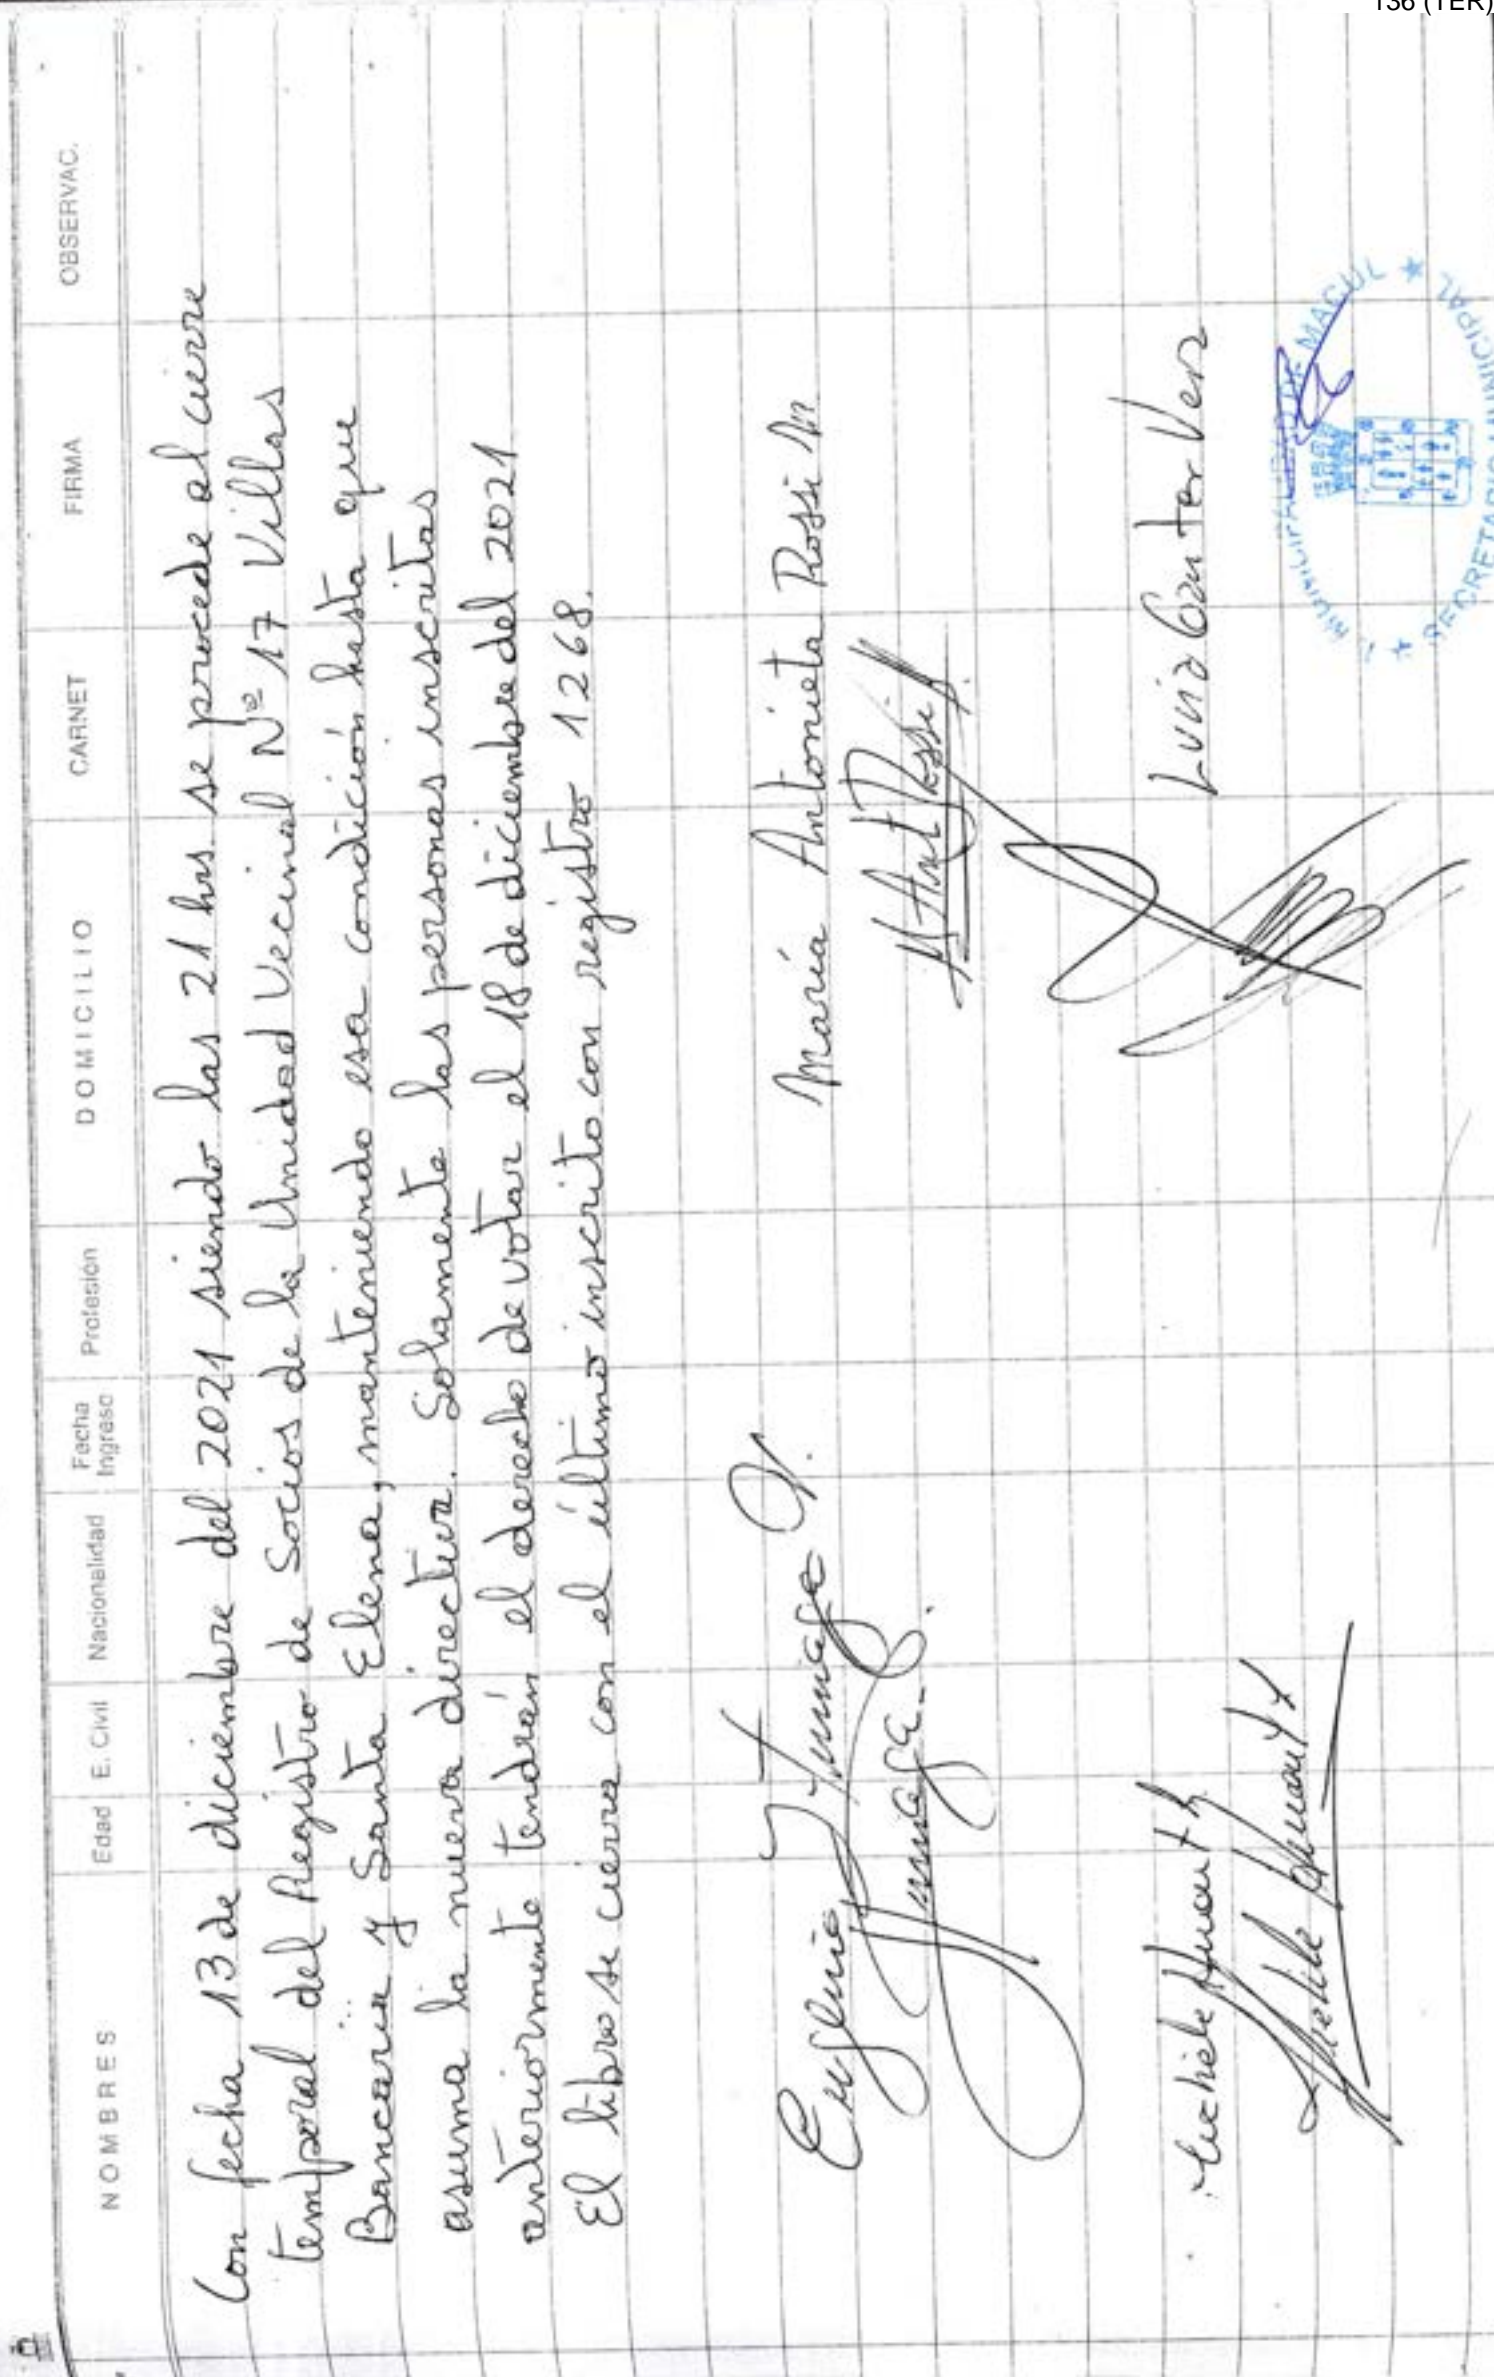 136 (TER)
NOMBRES Edad E. Civil Nacionalidad Fecha Ingreso Profesión DOMICILIO CARNET FIRMA OBSERVAC.
Con fecha 13 de diciembre del 2021 siendo las 21 hrs. se procede al cierre
temporal del Registro de Socios de la Unidad Vecinal Nº 17 Villas
Bancaria y Santa Elena, manteniendo esa condición hasta que
asuma la nueva directiva. Solamente las personas inscritas
anteriormente tendrán el derecho de votar el 18 de diciembre del 2021
El libro se cierra con el último inscrito con registro 1268.
María Antonieta Rossi M
Ant Rossi
Luvia Canter Vera
I. MUNICIPALIDAD DE MACUL
SECRETARIO MUNICIPAL